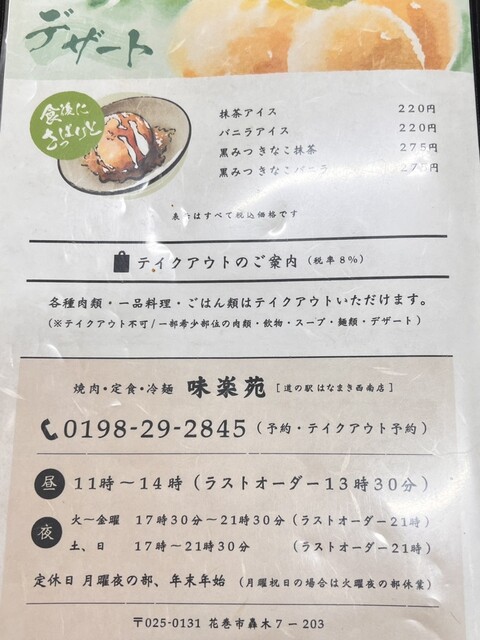 デザート
食後に
さっぱりと
抹茶アイス 220円
バニラアイス 220円
黒みつきなこ抹茶 275円
黒みつきなこバニラ 275円
表示はすべて税込価格です
テイクアウトのご案内（税率8%）
各種肉類・一品料理・ごはん類はテイクアウトいただけます。
（※テイクアウト不可/一部希少部位の肉類・飲物・スープ・麺類・デザート）
焼肉・定食・冷麺 味楽苑 [道の駅 はなまき西南店]
0198-29-2845（予約・テイクアウト予約）
昼 11時～14時（ラストオーダー13時30分）
夜 火～金曜 17時30分～21時30分（ラストオーダー21時）
土、日 17時～21時30分 （ラストオーダー21時）
定休日 月曜夜の部、年末年始 （月曜祝日の場合は火曜夜の部休業）
〒025-0131 花巻市轟木7－203